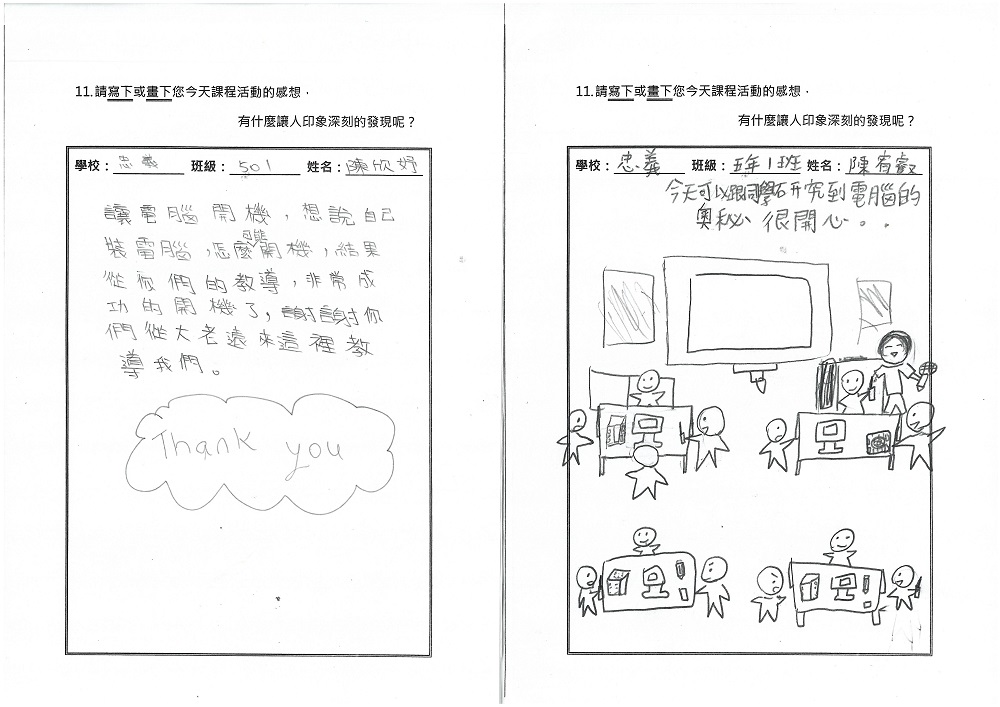 11.請寫下或畫下您今天課程活動的感想，
有什麼讓人印象深刻的發現呢？
學校：忠義 班級：501 姓名：陳欣妤
讓電腦開機，想說自己
裝電腦，怎麼可能開機，結果
從你們的教導，非常成
功的開機了，謝謝你
們從大老遠來這裡教
導我們。
Thank you
11.請寫下或畫下您今天課程活動的感想，
有什麼讓人印象深刻的發現呢？
學校：忠義 班級：五年1班 姓名：陳宥叡
今天可以跟同學研究到電腦的
奧秘 很開心。